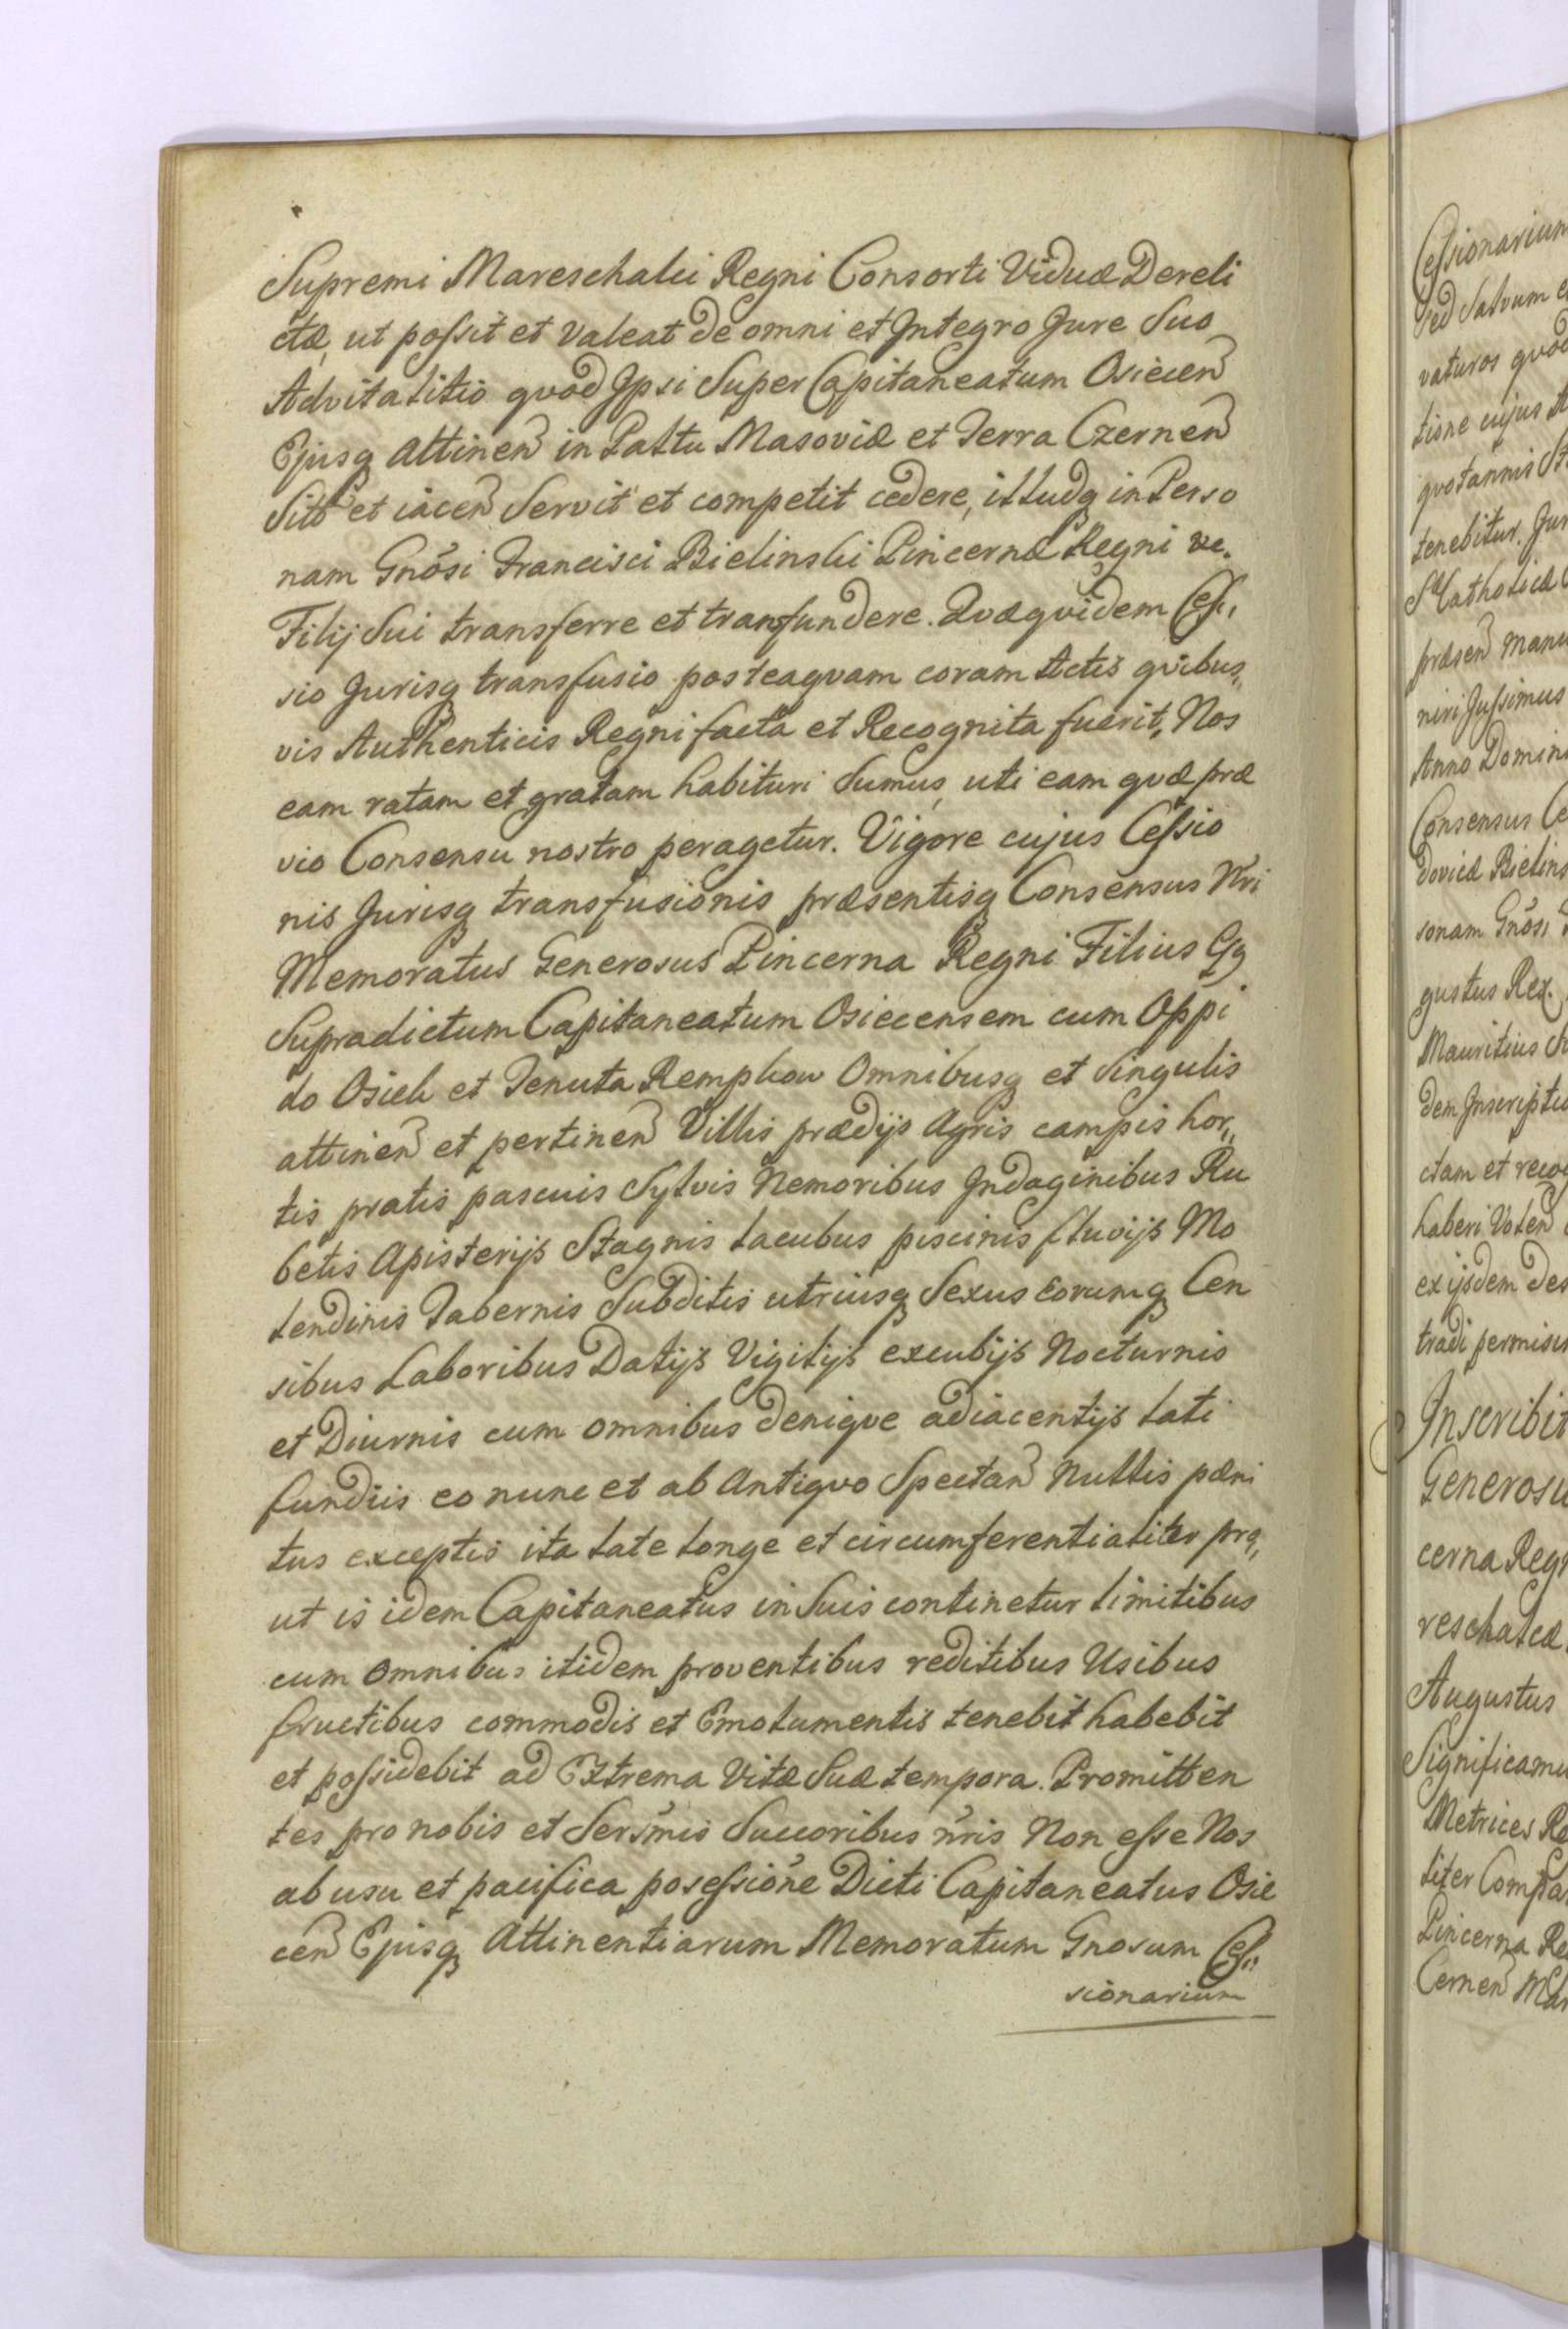 Supremi Mareschalci Regni Consorti Viduæ Dereli
ctæ, ut possit et valeat de omni et Integro Jure Suo
Advitalitio quod Ipsi Super Capitaneatum Osiecen
Ejusq Attinen in Pałłtu Masoviæ et Terra Czernen
Sito et iacen Servit et competit cedere, illudq in Perso
nam Gnosi Francisci Bielinski Pincernæ Regni
Filij Sui transferre et transfundere. Quæquidem Ces,
sio Jurisq transfusio posteaquam coram Actis quibus,,
vis Authenticis Regni facta et Recognita fuerit, Nos
eam ratam et gratam habituri Sumus, uti eam quæ præ
vio Consensu nostro peragetur. Vigore cujus Cessio
nis Jurisq transfusionis præsentisq Consensus Nri
Memoratus Generosus Pincerna Regni Filius
Supradictum Capitaneatum Osiecensem cum Oppi
do Osiek et Tenuta Rempkow Omnibusq et Singulis
attinen et pertinen Villis prædijs Agris campis hor,,
tis pratis pascuis Sylvis Nemoribus Indaginibus Ru
betis Apisterijs Stagnis lacubus piscinis fluvijs Mo
lendinis Tabernis Subditis utriusq Sexus eorumq Cen
sibus Laboribus Datijs Vigilijs excubijs Nocturnis
et Diurnis cum omnibus denique adiacentijs lati
fundiis eo nunc et ab Antiquo Spectan Nullis pæni
tus exceptis ita late longe et circumferentialiter pro,
ut is idem Capitaneatus in Suis continetur limitibus
cum omnibus itidem proventibus reditibus Usibus
fructibus commodis et Emolumentis tenebit habebit
et possidebit ad Extrema Vitæ Suæ tempora. Promitten
tes pro nobis et Sersmis Succoribus nris Non esse Nos
ab usu et pacifica posessione Dicti Capitaneatus Osie
cen Ejusq Attinentiarum Memoratum Gnosum Ces,,
sionarium
Cessionarium
Sed Salvum
vaturos quod
tione cujus
quotannis
tenebitur. Jur
S Catholicæ
præsen manu
niri Jussimus
Anno Domini
Consensus Ce
dovicæ Bielins
sonam Gnosi
gustus Rex.
Mauritius
dem Inscriptio
ctam et recog
haberi Volen
ex ijsdem des
tradi permisi
Inscribit
Generosu
cerna Regn
reschalcæ
Augustus
Significamu
Metrices Re
liter Compa
Pincerna Re
Cernen Mar